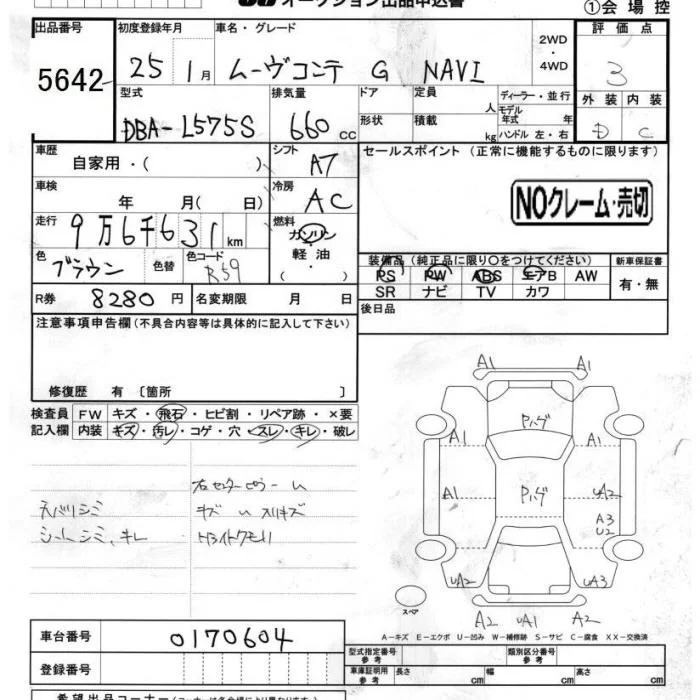 オークション出品申込書
①会場控
出品番号 初度登録年月 車名・グレード 2WD・4WD 評価点
5642 25 1月 ムーヴコンテ G NAVI 3
型式 排気量 ドア 定員 人 ディーラー・並行 外装 内装
DBA-L575S 660cc 形状 積載 kg モデル年式 年 ハンドル 左・右 D C
車歴 シフト セールスポイント (正常に機能するものに限ります)
自家用・( ) A7
車検 年 月( 日) 冷房 AC NOクレーム・売切
走行 9万6千631km 燃料 ガソリン・軽油・( )
色 ブラウン 色替 色コード R59 装備品 (純正品に限り○をつけてください) 新車保証書
PS PW ABS エアB AW 有・無
SR ナビ TV カワ
R券 8280円 名変期限 月 日 後日品
注意事項申告欄 (不具合内容等は具体的に記入して下さい)
修復歴 有 〔箇所 〕
検査員 FW キズ・飛石・ヒビ割・リペア跡・×要
記入欄 内装 キズ・汚レ・コゲ・穴・スレ・キレ・破レ
右センターピラー
天バリシミ キズ スリキズ
シートシミ、キレ
A1 A1
Pハゲ
A1 A1
A1 Pハゲ UA2
A3
U2
UA2 UA3
スペア A2 UA1 A2
A-キズ E-エクボ U-凹み W-補修跡 S-サビ C-腐食 XX-交換済
車台番号 0170604
型式指定番号 参考 類別区分番号 参考
登録番号 車庫証明用 参考 長さ cm 幅 cm 高さ cm
希望出品コーナー